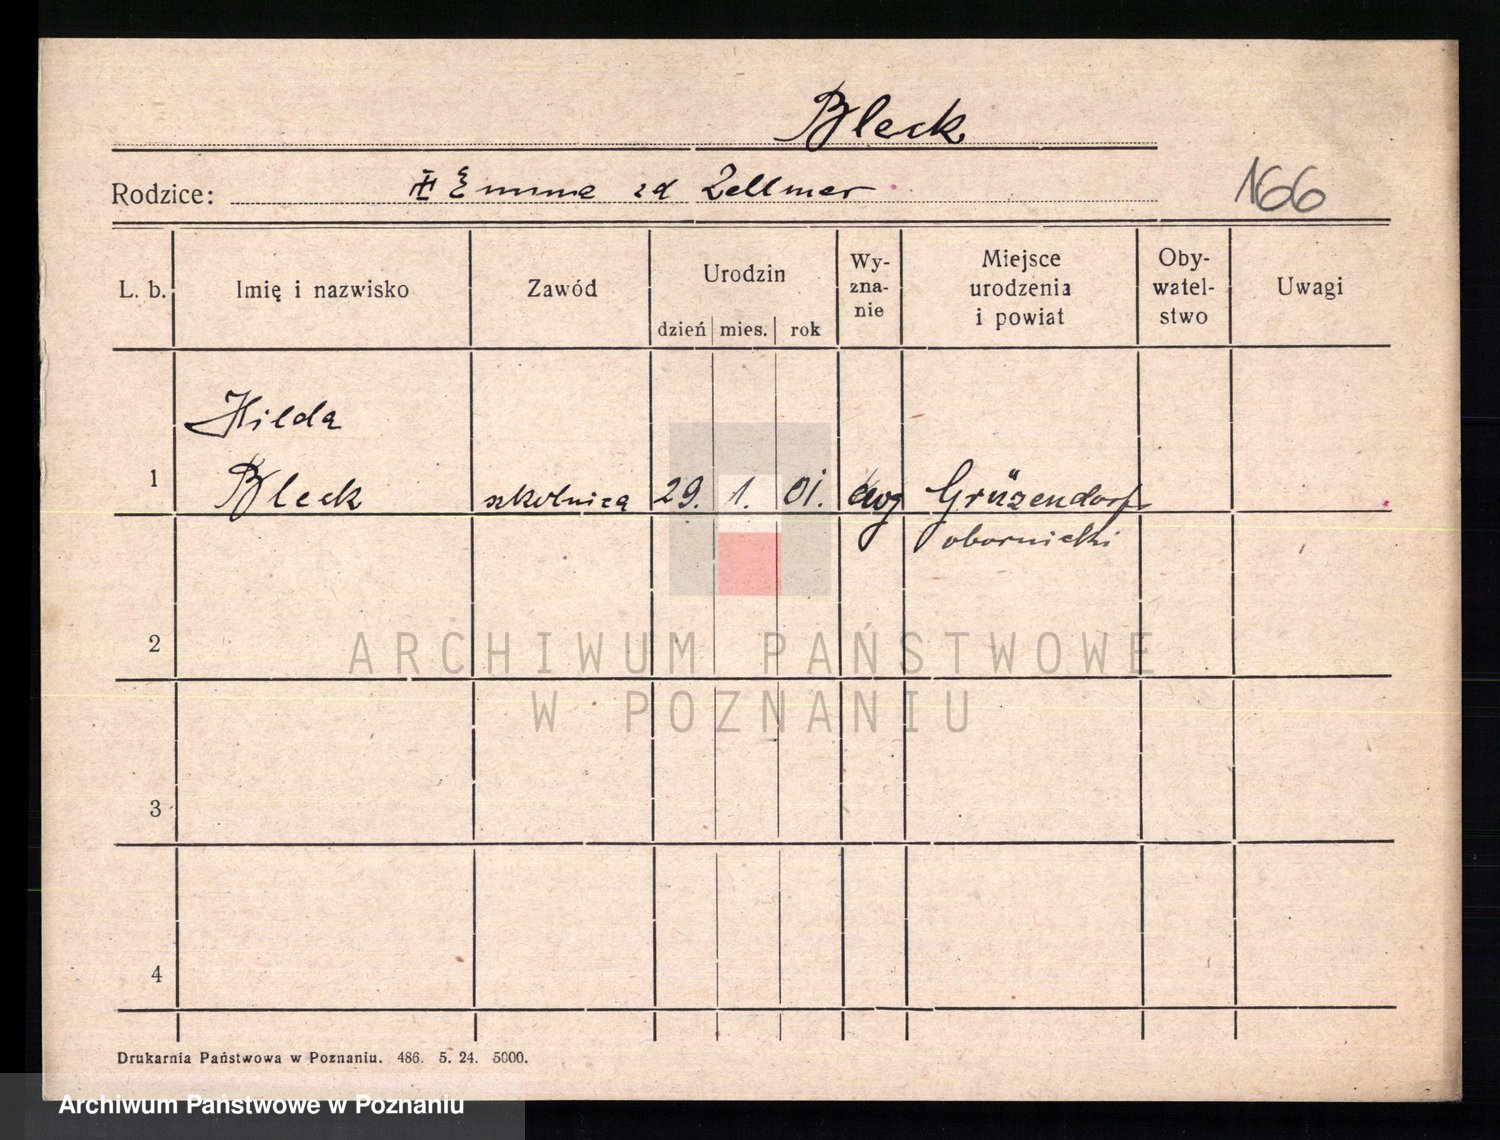 Bleck
Rodzice: Emma zd Zellmer
166
L. b. Imię i nazwisko Zawód Urodzin dzień mies. rok Wy-zna-nie Miejsce urodzenia i powiat Oby-watel-stwo Uwagi
Hilda
1 Bleck szkolnica 29. 1. 01. ewg Grüzendorf
obornicki
2
ARCHIWUM PAŃSTWOWE
W POZNANIU
3
4
Drukarnia Państwowa w Poznaniu. 486. 5. 24. 5000.
Archiwum Państwowe w Poznaniu